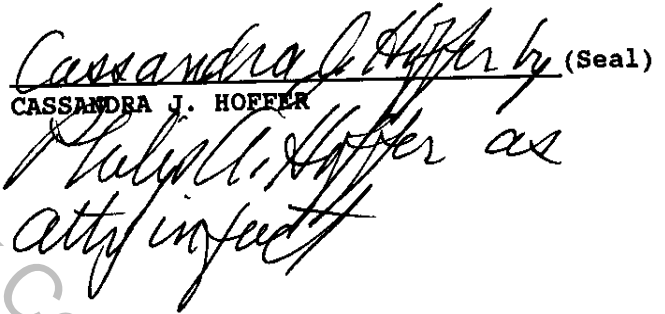 Cassandra J. Hoffer by (Seal)
CASSANDRA J. HOFFER
Philip A. Hoffer as
atty in fact